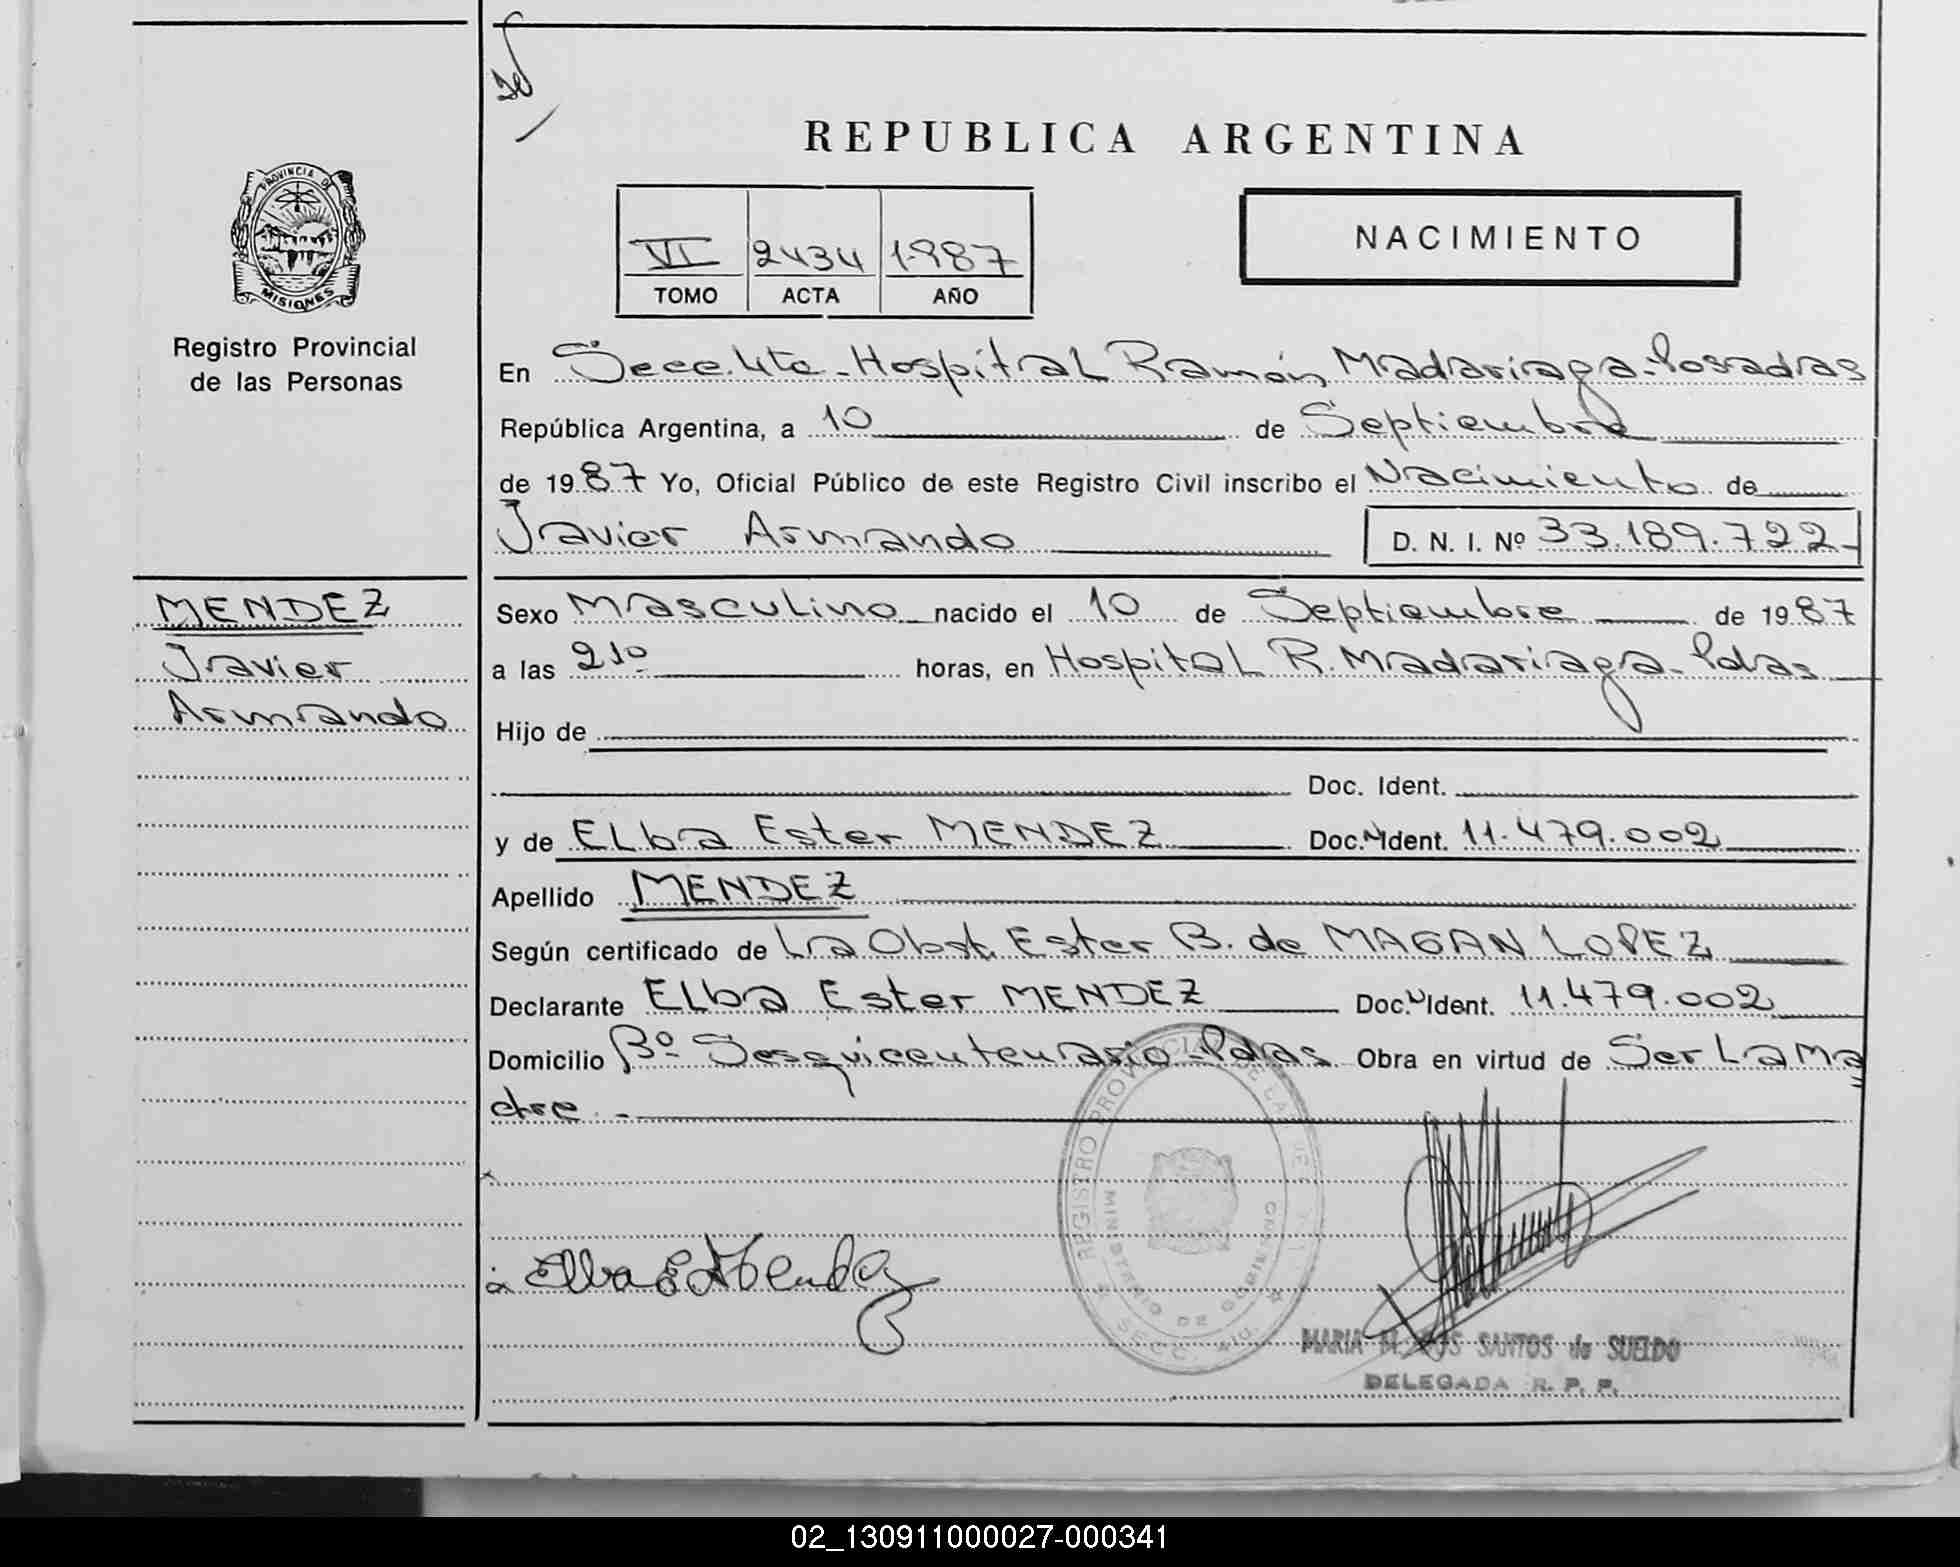 REPUBLICA ARGENTINA
PROVINCIA DE
MISIONES
Registro Provincial
de las Personas
VI 2434 1987
TOMO ACTA AÑO
NACIMIENTO
En Secc. 4ta - Hospital Ramón Madariaga - Posadas
República Argentina, a 10 de Septiembre
de 1987 Yo, Oficial Público de este Registro Civil inscribo el Nacimiento de
Javier Armando D. N. I. Nº 33.189.722-
MENDEZ
Javier
Armando
Sexo Masculino nacido el 10 de Septiembre de 1987
a las 2¹⁰ horas, en Hospital R. Madariaga - Pdas
Hijo de
Doc. Ident.
y de ELba Ester MENDEZ Doc. Ident. 11.479.002
Apellido MENDEZ
Según certificado de La Obst. Ester B. de MAGAN LOPEZ
Declarante ELba Ester MENDEZ Doc. Ident. 11.479.002
Domicilio Bº Sesquicentenario - Pdas Obra en virtud de Ser La Ma
dre. -
REGISTRO PROVINCIAL DE LAS
MINISTERIO DE GOBIERNO
SECC. 4ta.
Elba E. Mendez
MARIA M. DOS SANTOS de SUELDO
DELEGADA R. P. P.
02_130911000027-000341